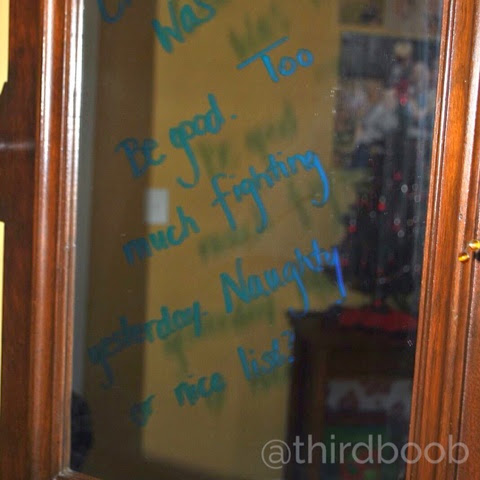 Was
Too
Be good.
much fighting
yesterday. Naughty
or nice list?
@thirdboob